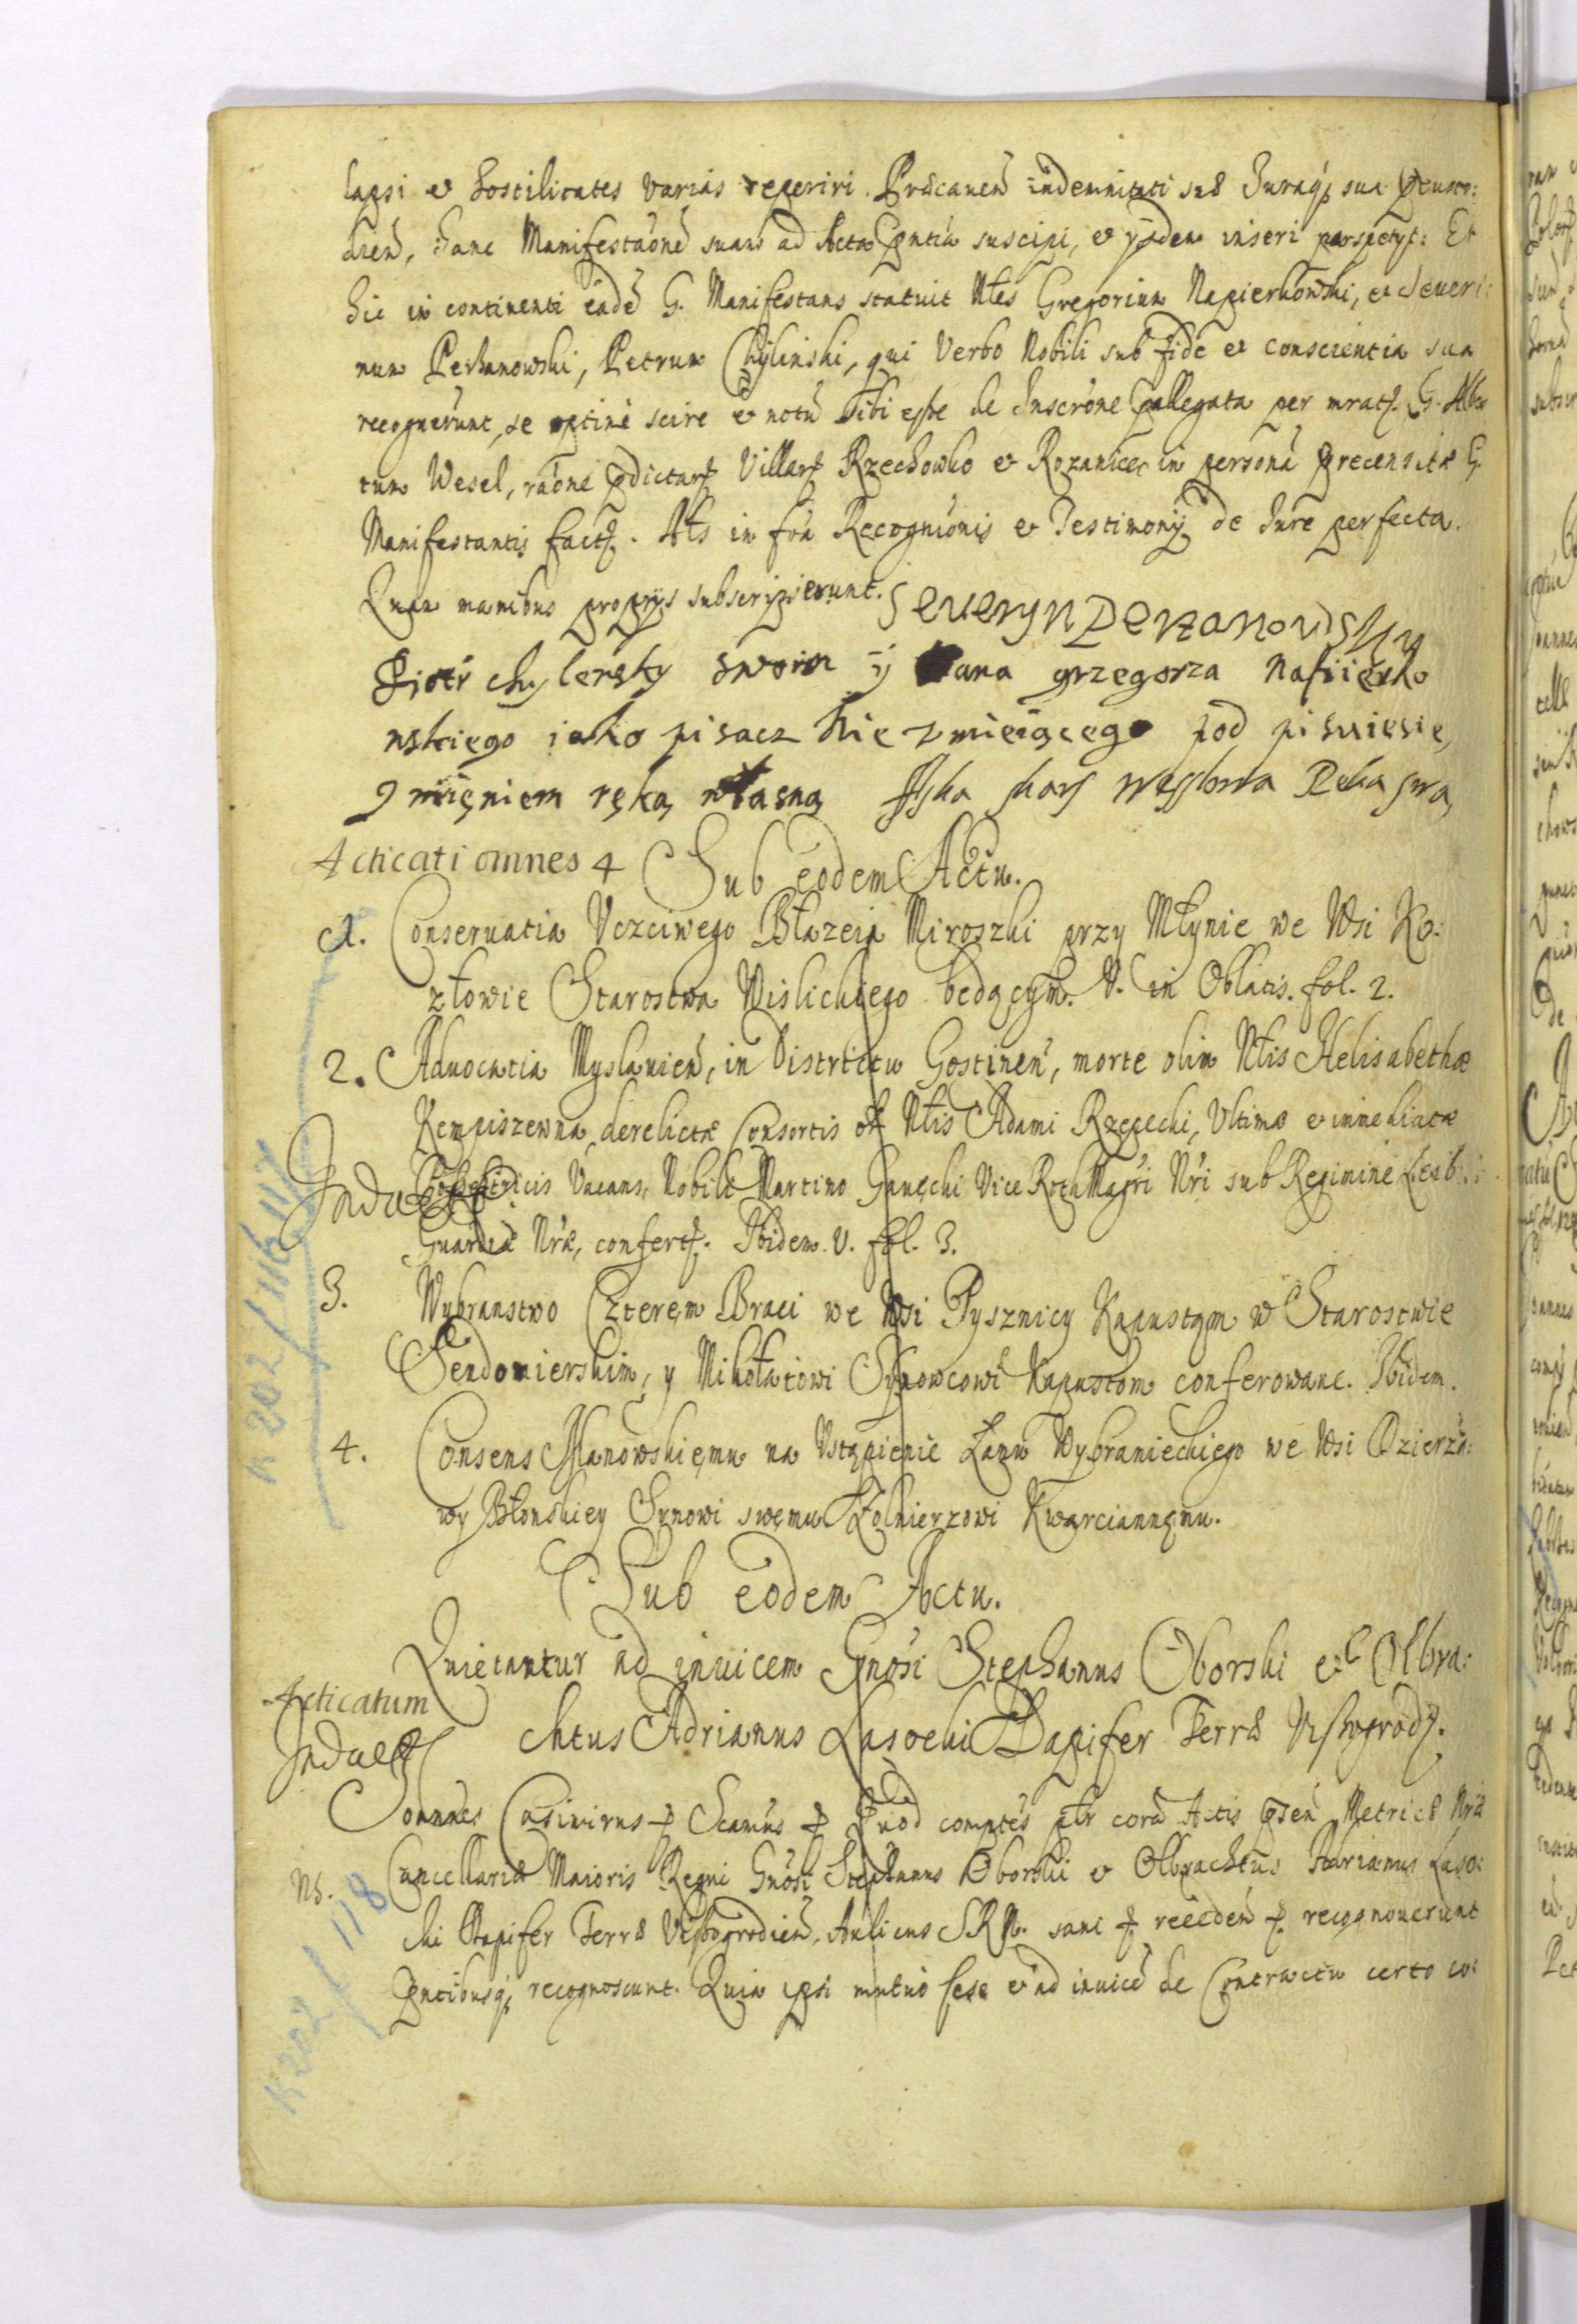 lapsi et hostilitates varias reperiri. Præcaueñ indemnitati suæ Juraq; sua
dieñ, hanc Manifestaõne suam ad Acta pñtia suscipi, et ijsdem inseri Et
hic in continenti eadē G. Manifestans statuit Nłes Gregorium Napierkowski, et Seueri:
num Perzanowski, Petrum Chyliński, qui Verbo Nobili sub fide et conscientia sua
recognerunt, se optime scire et notū sibi esse de Inscrone pallegata per G. Alber
tum Wesel, raone pdictarz Villarz Rzechowko et Rozanicec in persona precensitæ G.
Manifestantis factz. Als in fõa Recognionis et Testimonij de Jure perfecta.
Quam manibus proprijs subscripserunt. Seueryn Perzanowsky
Piotr chylensky swoim ij Pana grzegorza Napierko
wskiego iako pisacz nie umieiącego pod pisuiesie
imięniem ręką własną węsslowa Ręka swa
Acticati omnes 4 Sub eodem Actu.
1. Conseruatia Vczciwego Błazeia Miroszki przy Młynie we Wsi Ko:
złowie Starostwa Wislickiego będącym. V. in Oblatis. fol. 2.
2. Aduocatia Myslanień, in Districtu Gostineń, morte olim Nłis Helisabethæ
Kempiszewna, derelictæ Consortis Nłis Adami Rzepecki, Vltimæ et immediatæ
Possestricis Vacans, Nobili Martino Ganęcki Vice RothMagri Nri sub Regimine
Induct
Guardiæ Nræ, confertz. Ibidem. V. fol. 3.
3. Wybranstwo Czterem Braci we Wsi Pysznicy Kapustom w Starostwie
Sendomierskim, y Mikołaiowi Synowcowi Kapustom conferowane. Ibidem.
4. Consens Manowskięmu na Vstąpienie Łanu Wybranieckiego we Wsi Dzierzą:
wy Błonskiey Synowi swęmu Żołnierzowi Kwarciannęmu.
K 202/116, 117
Sub eodem Actu.
Quietantur ad inuicem Gnosi Stephanus Oborski et Olbra:
Acticatum
chtus Adrianus Lasocki Dapifer Terræ Vissogrodz.
Induct
Joannes Casimirus Scamus Quod comptes płr corā Actis pseñ Metricæ Nræ
Ns. Cancellariæ Maioris Regni Gnosi Stephanus Oborski et Olbrachtus Adrianus Laso:
cki Dapifer Terræ Vissogrodień. Aulicus SRM. sani reecdeñ recognouerunt
pntibusq; recognoscunt. Quia ipsi mutuò sese et ad inuicē de Contractu certo co:
K 202/118